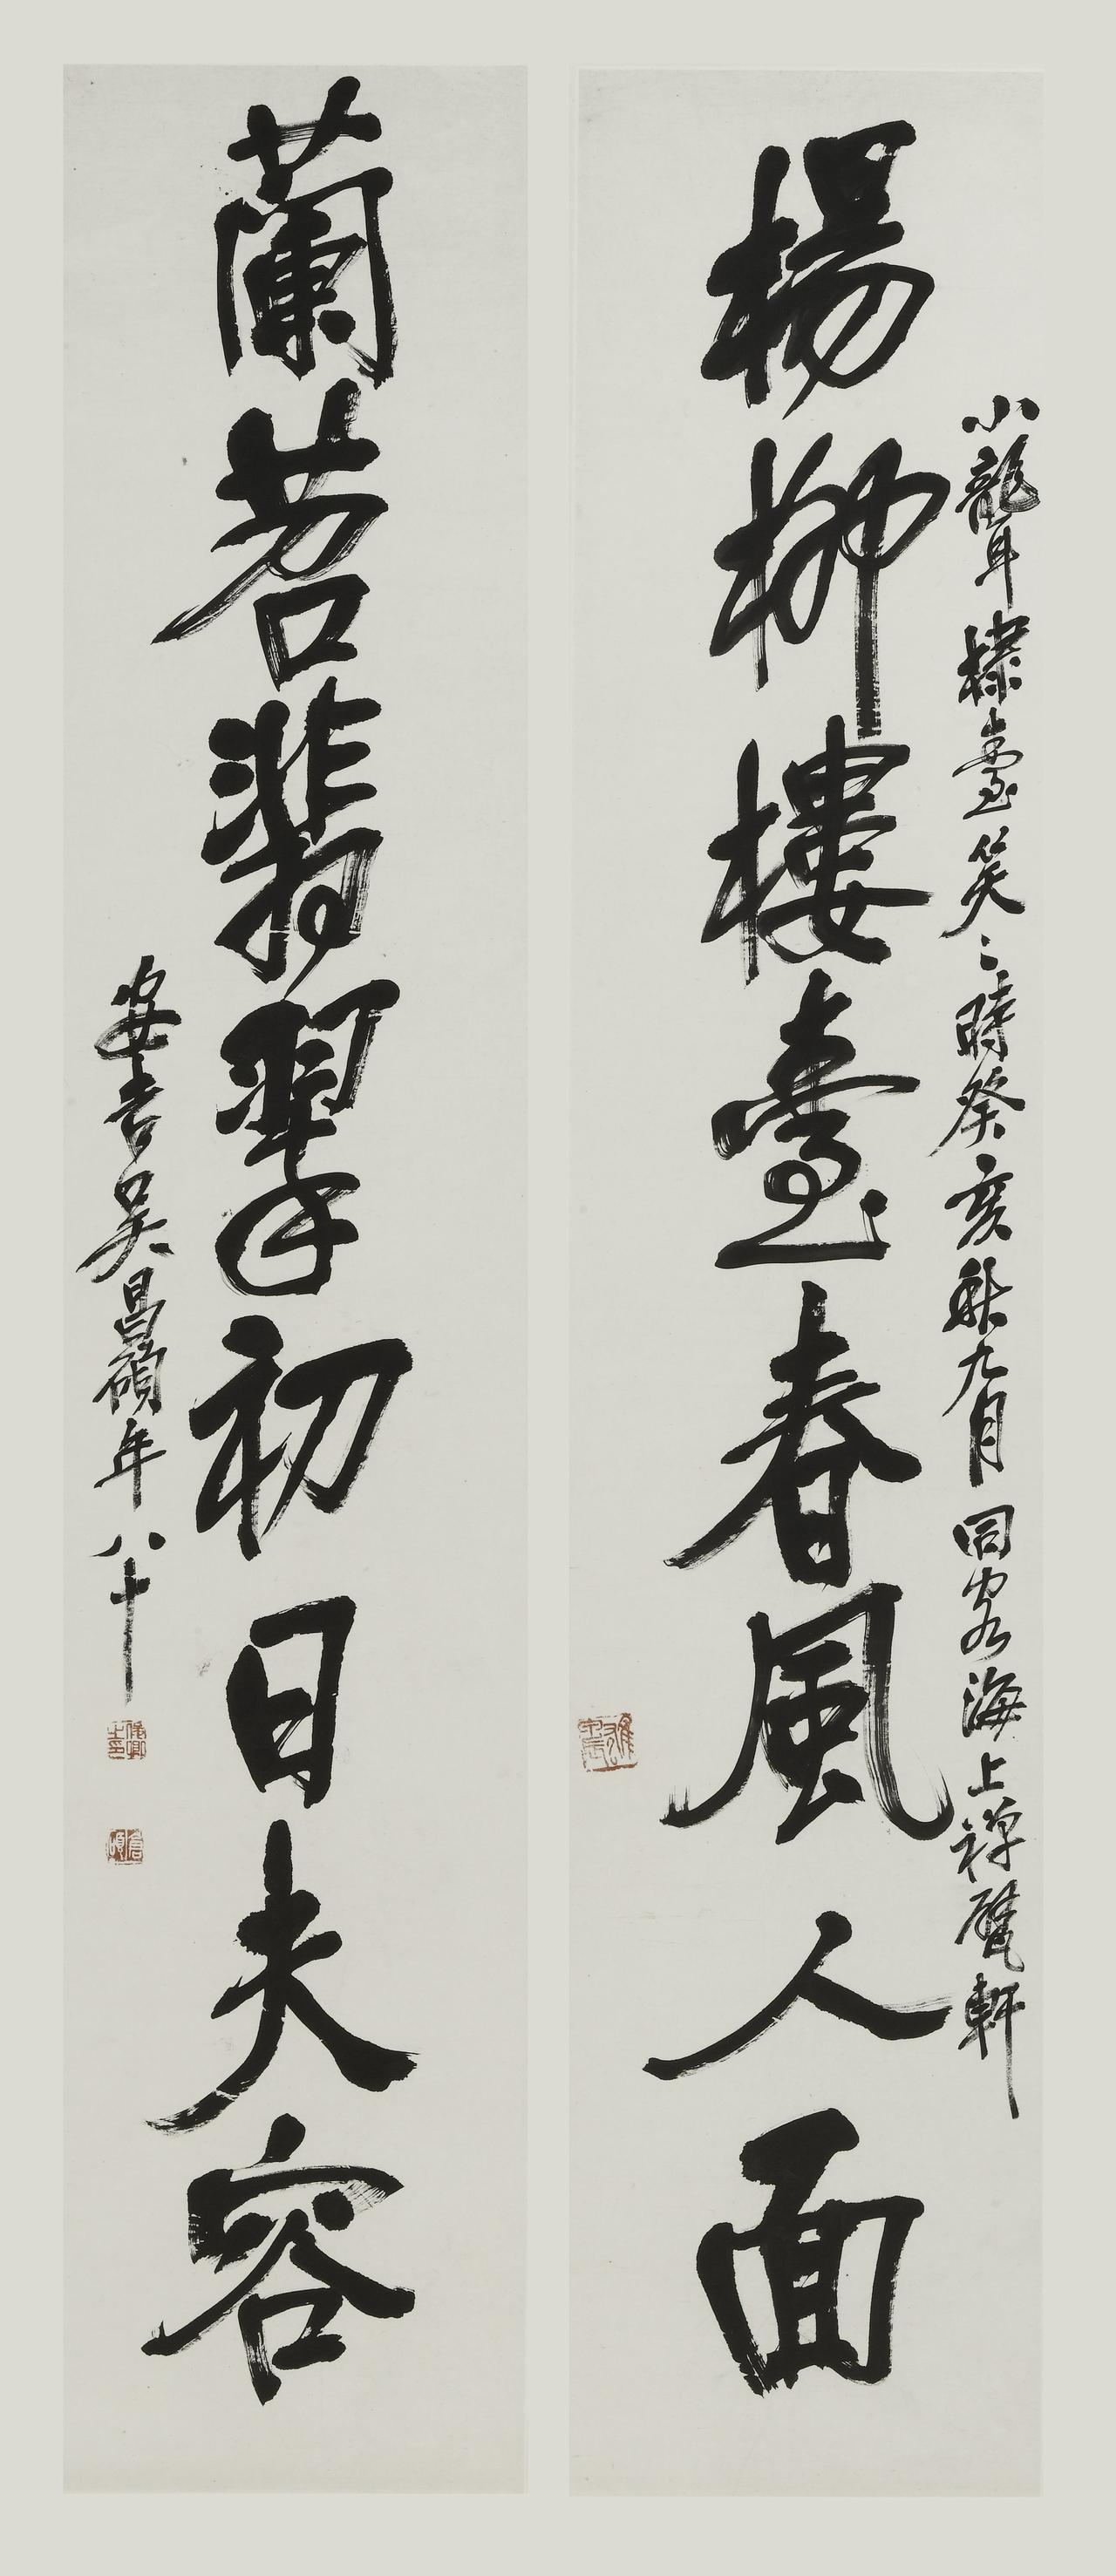 楊柳樓臺春風人面
小聾棣臺笑々時癸亥秌九月同客海上禪甓軒
雄甲辰
蘭苕翡翠初日夫容
安吉吳昌碩年八十
俊卿之印
倉碩